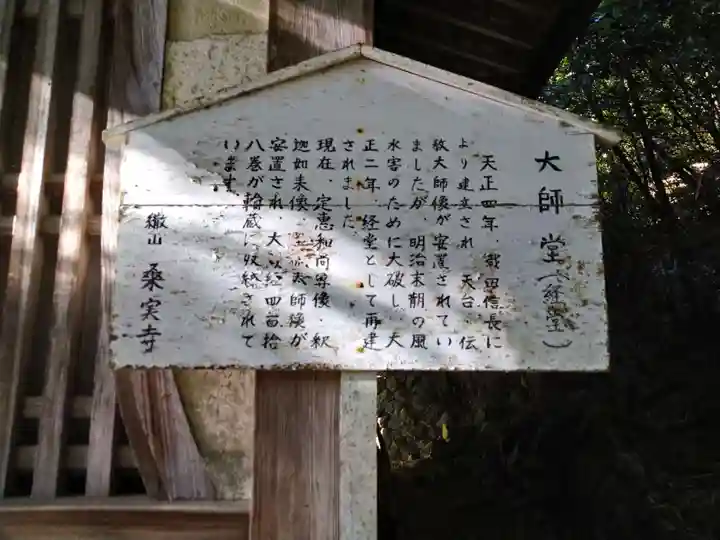 大師堂(経堂)
天正四年、織田信長に
より建立され、天台、伝
教大師像が安置されてい
ましたが、明治末期の風
水害のために大破し、大
正二年、経堂として再建
されました。
現在、定恵和尚尊像、釈
迦如来像、大師像が
安置され、大 経四百拾
八巻が輪蔵に収経されて
います。
繖山 桑実寺